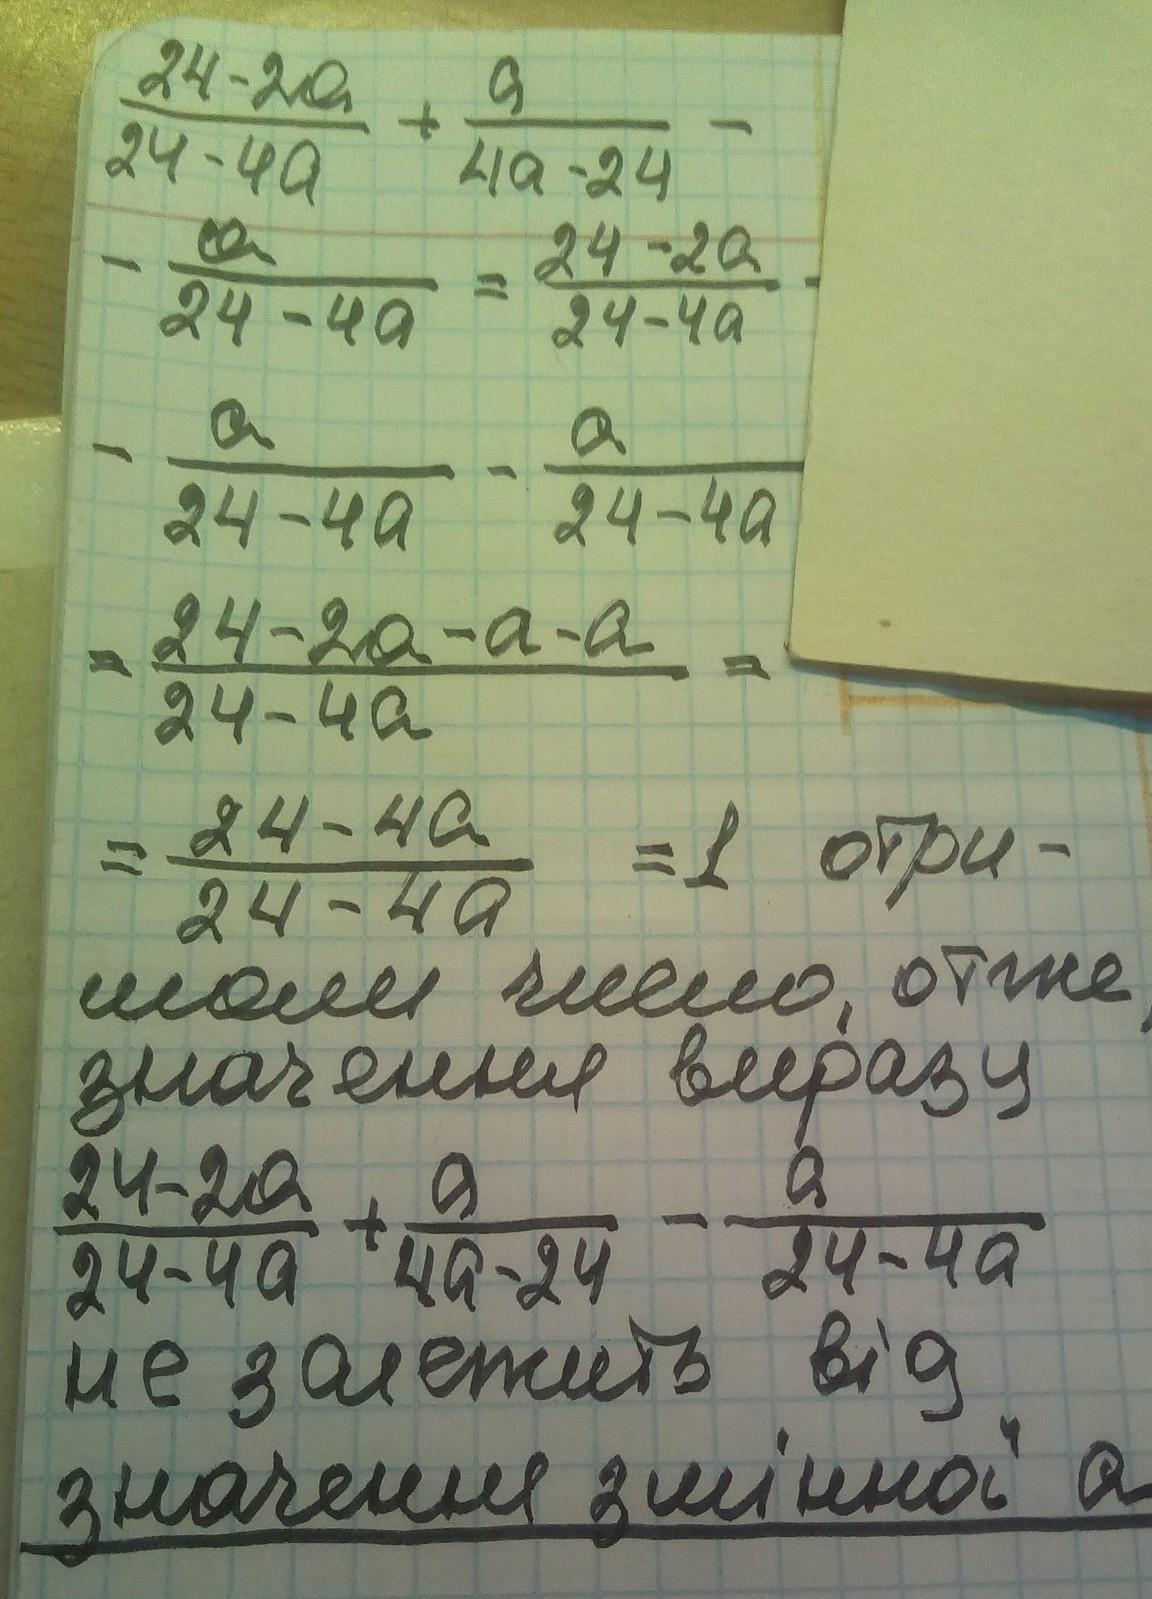 (24-2a)/(24-4a) + a/(4a-24) -
- a/(24-4a) = (24-2a)/(24-4a) -
- a/(24-4a) - a/(24-4a)
= (24-2a-a-a)/(24-4a) =
= (24-4a)/(24-4a) =1 отри-
мали число, отже,
значення виразу
(24-2a)/(24-4a) + a/(4a-24) - a/(24-4a)
не залежить від
значення змінної a